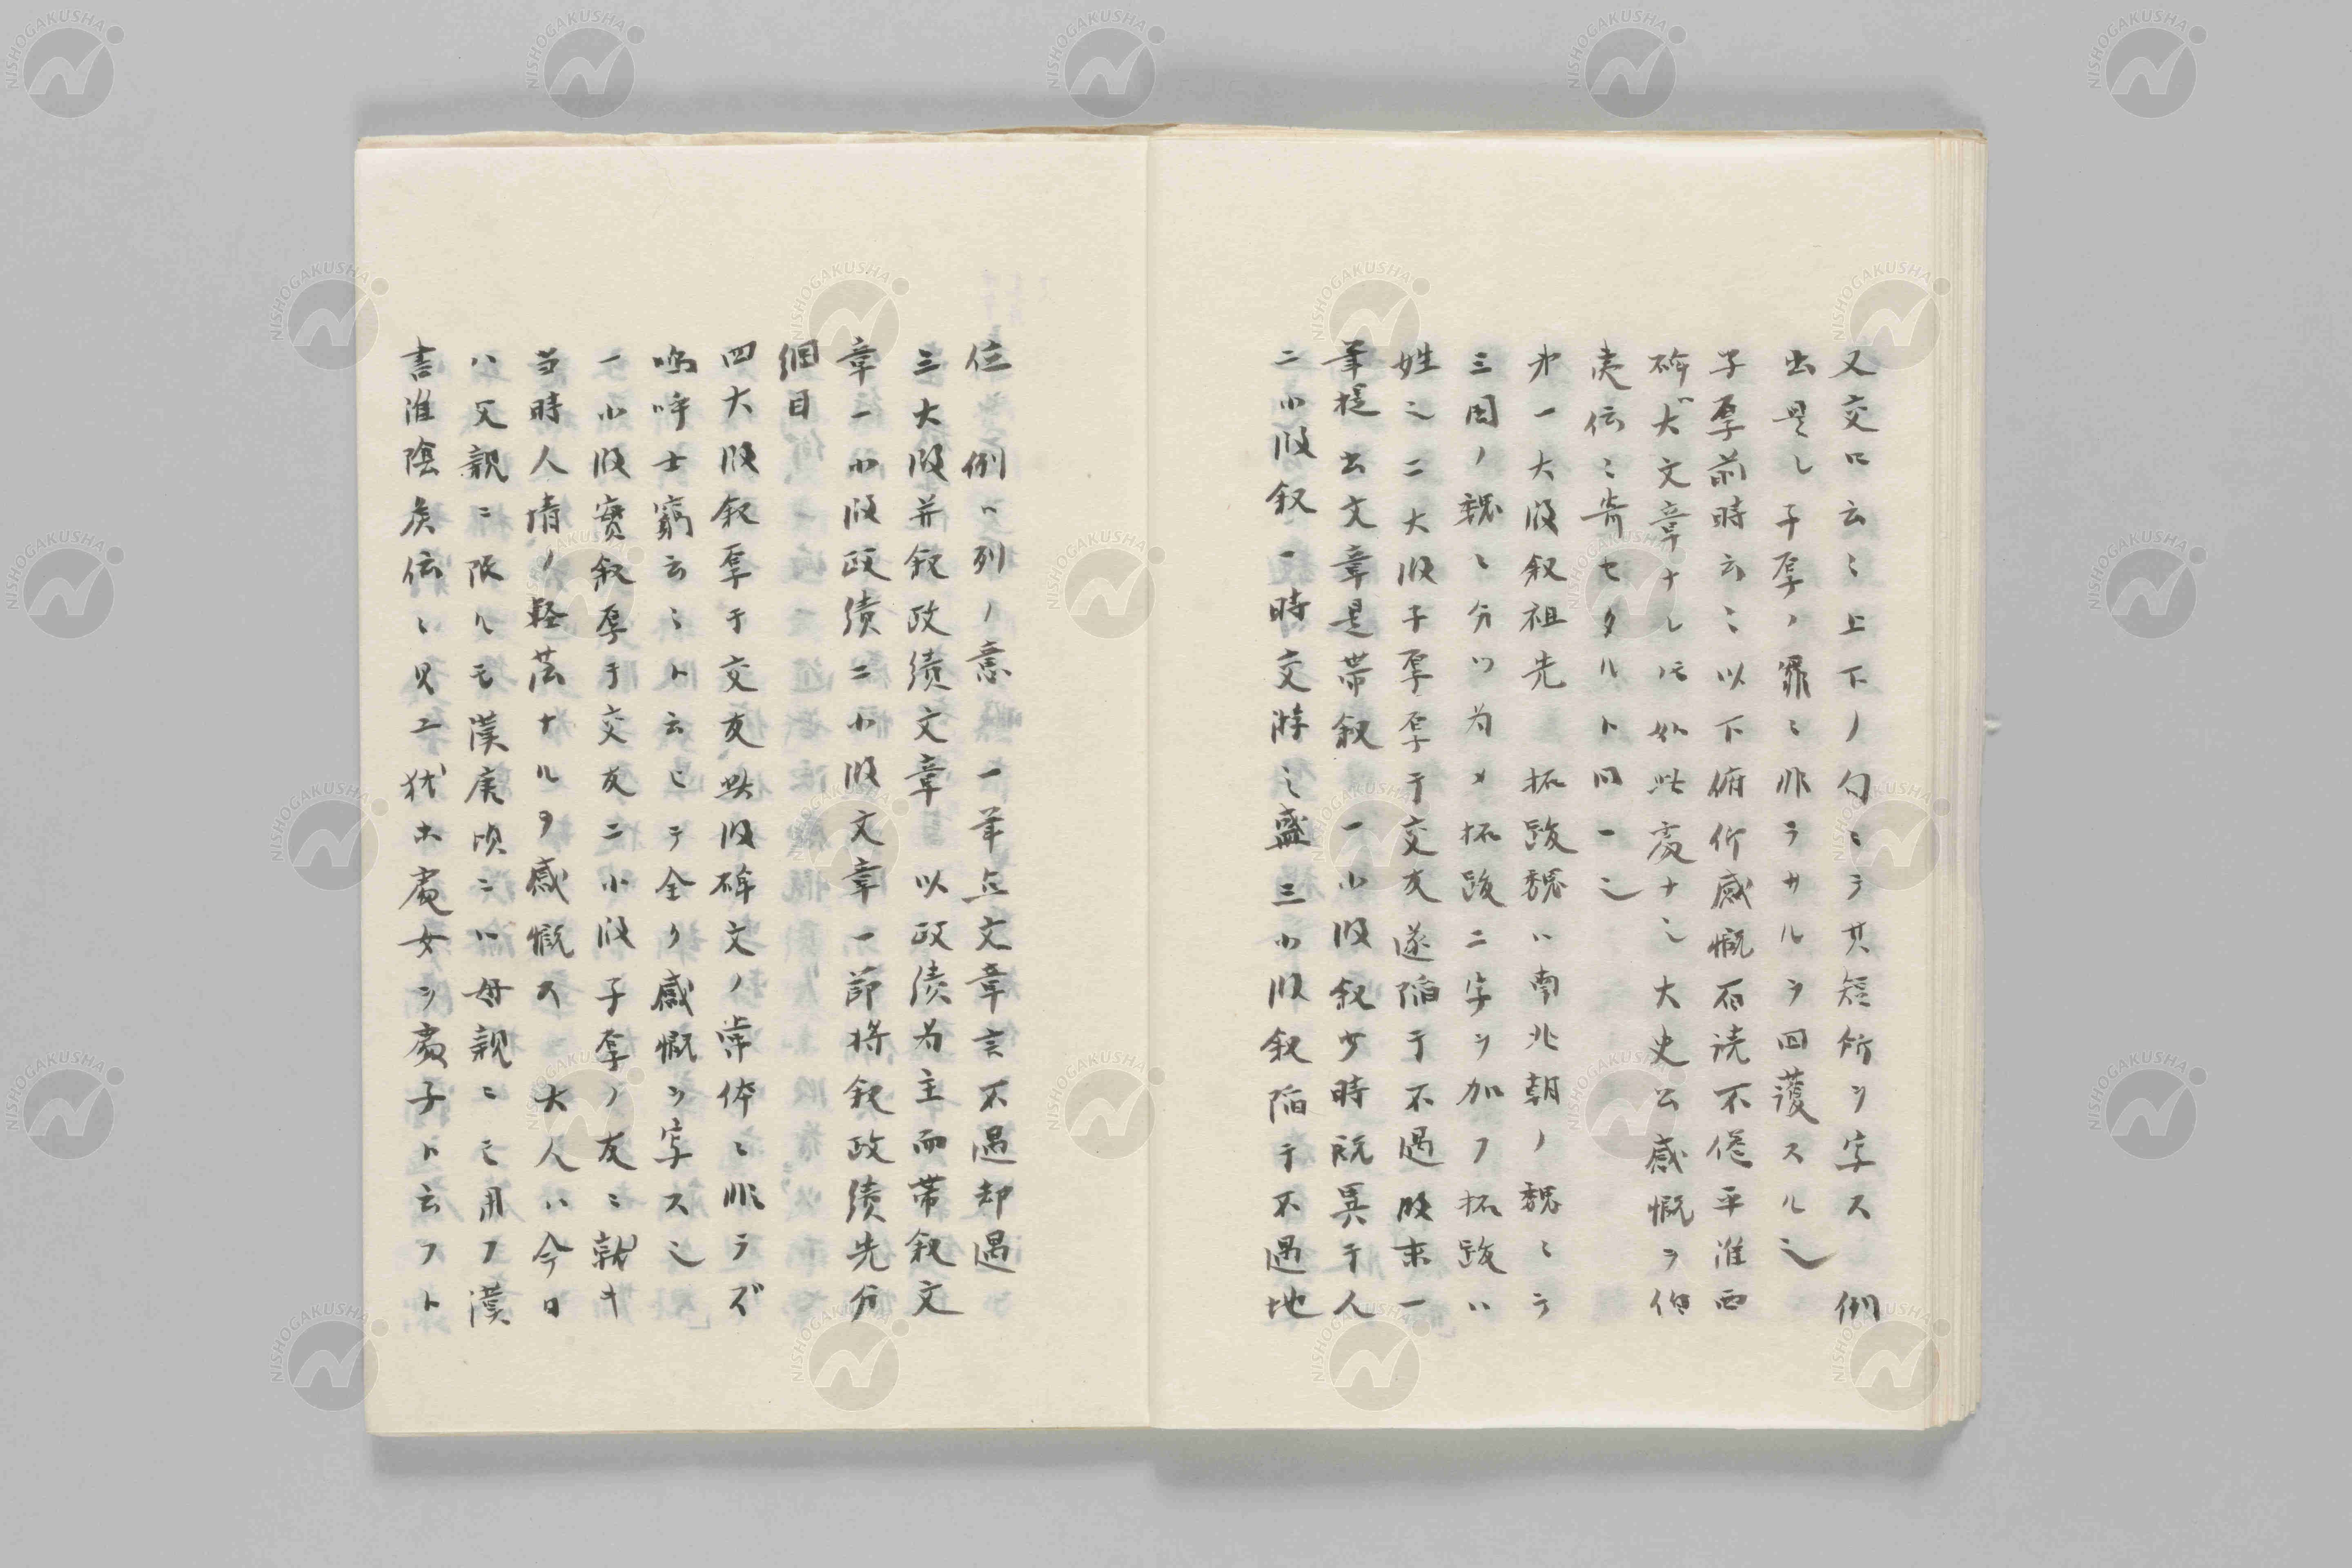 又交口云々上下ノ句ニテ其短所ヲ字ス 例
出是レ子厚ノ罪ニ非ラサルヲ回護スル也
子厚前時云々以下俯仰感慨百読不倦平淮西
碑ハ大文章ナレ𪜈如此処ナシ大史公感慨ヲ伯
夷伝ニ寄セタルト同一也
第一大段叙祖先 拓跋魏ハ南北朝ノ魏ニテ
三国ノ魏ト分ツ為メ拓跋二字ヲ加フ拓跋ハ
姓也二大段子厚厚于交友遂陥于不遇段末一
筆提出文章是帯叙 一小段叙少時既異于人
二小段叙一時交游之盛三小段叙陥于不遇地
位 例ハ列ノ意 一筆点文章言不遇却遇
三大段并叙政績文章 以政績為主而帯叙文
章一小段政績二小段文章一節将叙政績先分
綱目
四大段叙厚于交友此段碑文ノ常体ニ非ラズ
嗚呼士窮云々ト云ヒテ全ク感慨ヲ字ス也
一小段実叙厚于交友二小段子厚ノ友ニ就キ
当時人情ノ軽薄ナルヲ感慨ス 大人ハ今日
ハ父親ニ限レモ漢唐頃ニハ母親ニモ用フ漢
書淮陰侯伝ニ見ユ猶ホ処女ヲ処子ト云フト